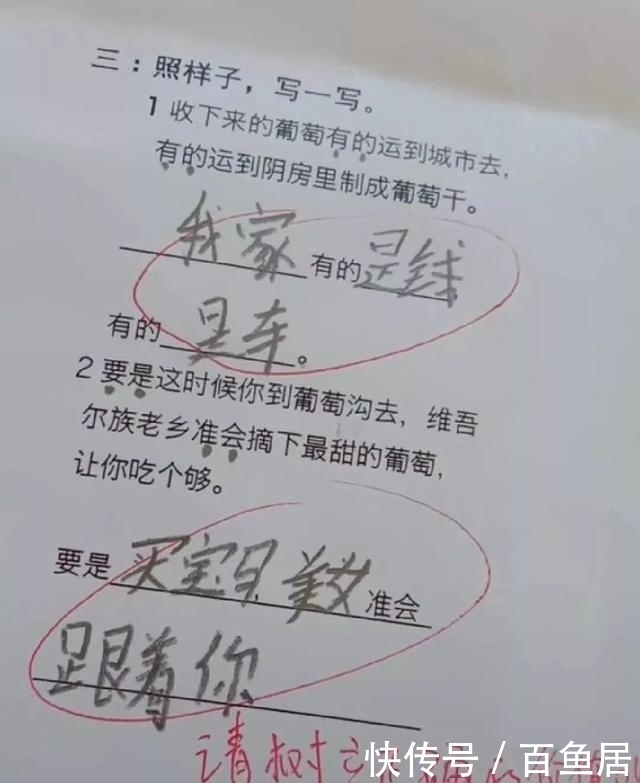 三：照样子，写一写。
1 收下来的葡萄有的运到城市去，
有的运到阴房里制成葡萄干。
我家 有的是钱
有的是车。
2 要是这时候你到葡萄沟去，维吾
尔族老乡准会摘下最甜的葡萄，
让你吃个够。
要是买宝马，美女准会
跟着你
请树立
快传号 / 百鱼居